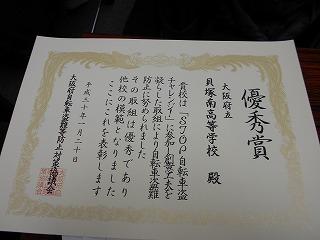 優秀賞
大阪府立
貝塚南高等学校 殿
貴校は「STOP自転車盗
チャレンジ」に参加し創意工夫を
凝らした取組により自転車盗難
防止に努められました
その取組は優秀であり
他校の模範となりました
ここにこれを表彰します
平成三十年一月二十日
大阪府自転車盗難等防止対策協議会